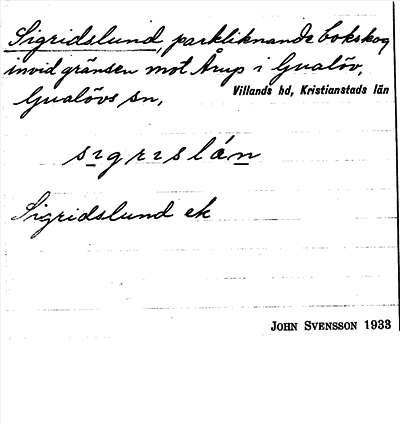 Sigridslund, parkliknande bokskog
invid gränsen mot Årup i Gualöv,
Gualövs sn, Villands hd, Kristianstads län
sıgrıslán
Sigridslund ek
JOHN SVENSSON 1933